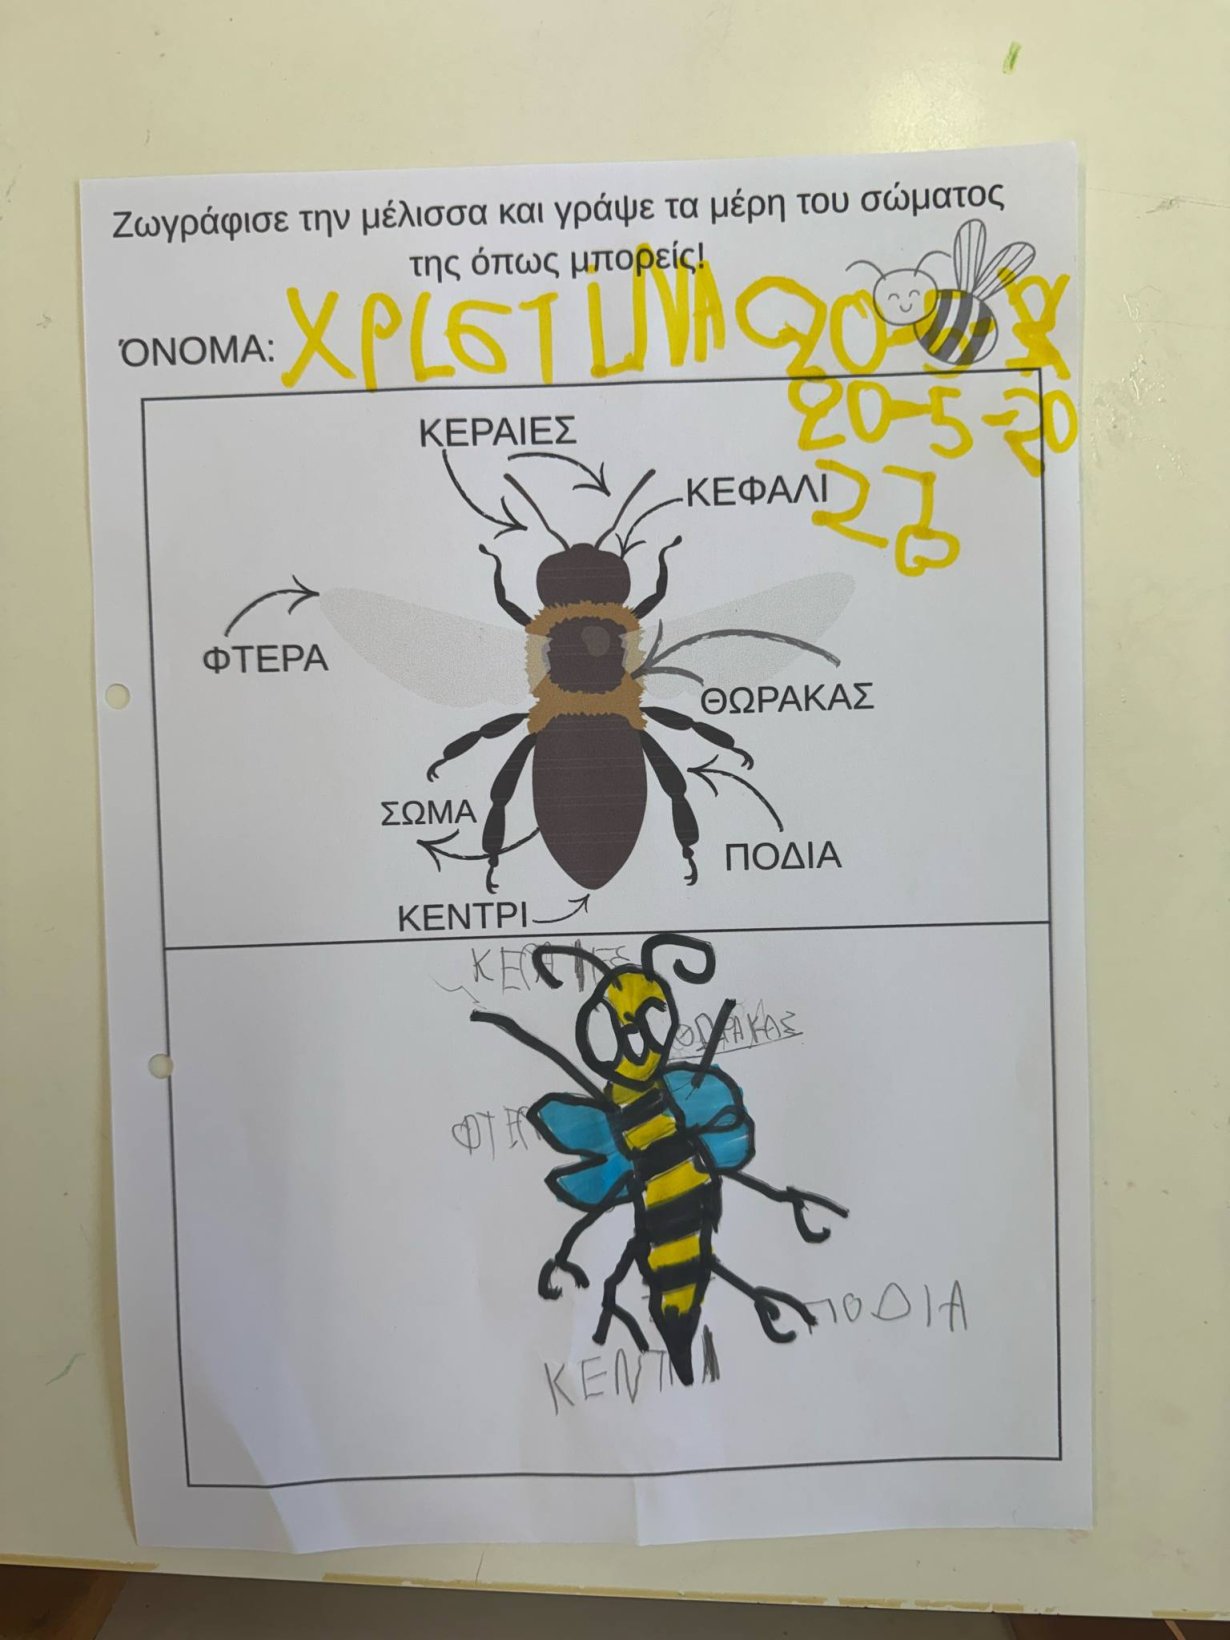 Ζωγράφισε την μέλισσα και γράψε τα μέρη του σώματος
της όπως μπορείς!
ΌΝΟΜΑ: ΧΡΙSΤΙΝΑ 20-5-
20-5-20
ΚΕΡΑΙΕΣ
ΚΕΦΑΛΙ
ΦΤΕΡΑ
ΘΩΡΑΚΑΣ
ΣΩΜΑ
ΠΟΔΙΑ
ΚΕΝΤΡΙ
ΚΕΡΑΙΕΣ
ΘΩΡΑΚΑΣ
ΦΤΕΡ
ΠΟΔΙΑ
ΚΕΝΤΡΙ